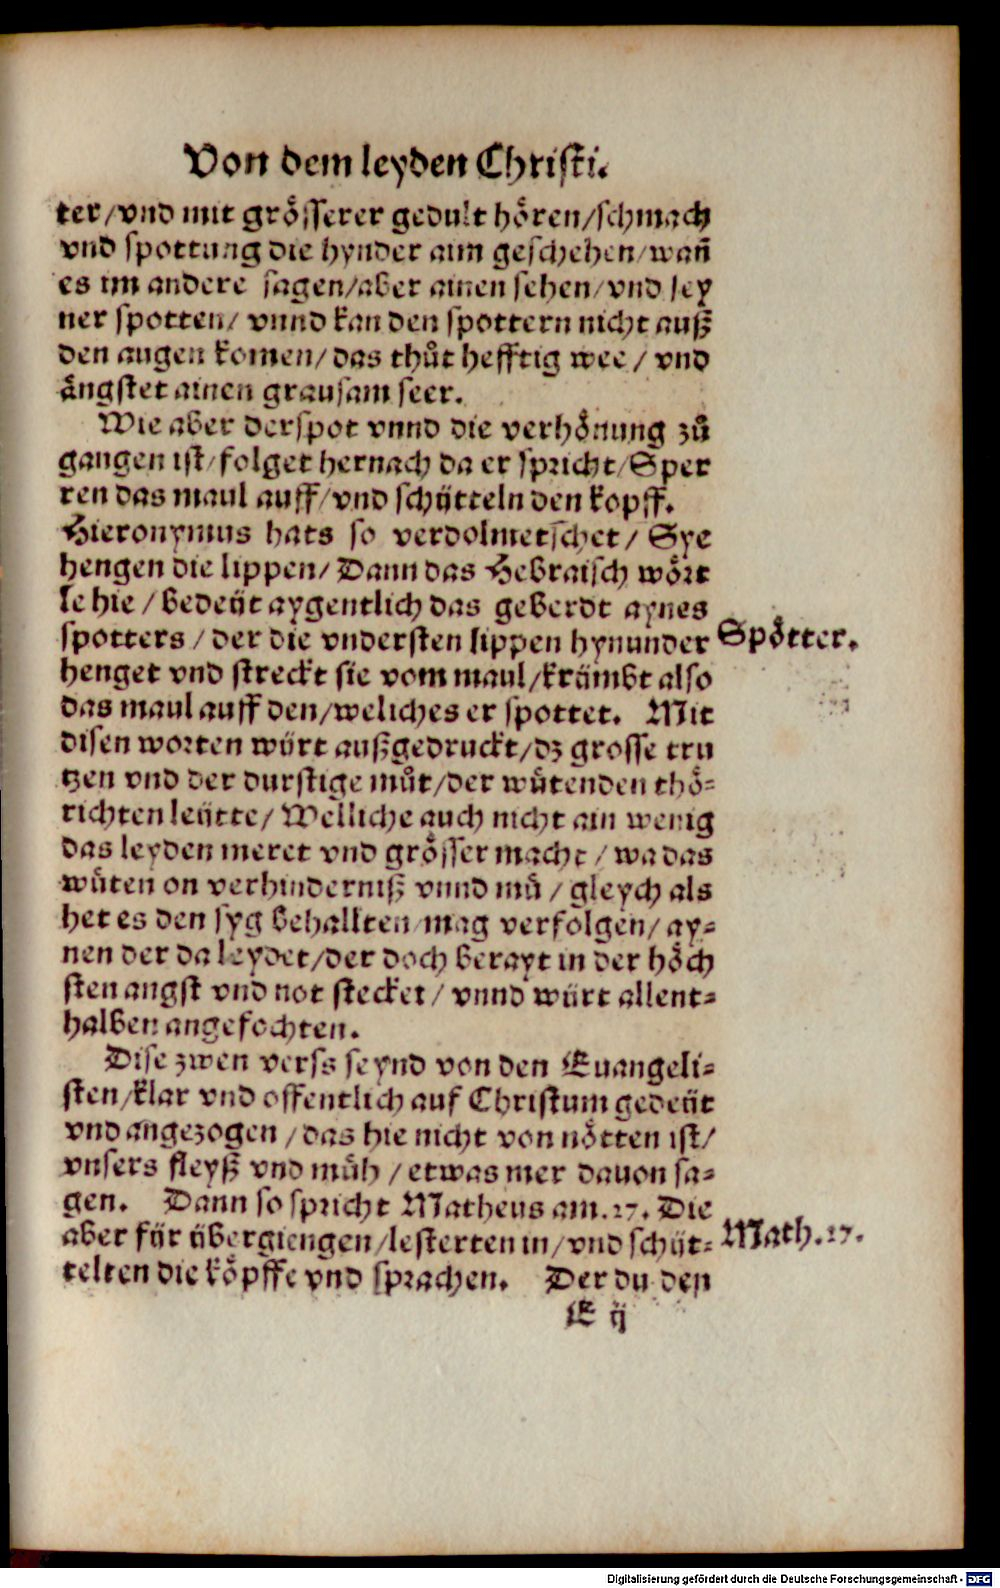 Von dem leyden Christi.
ter/vnd mit grösserer gedult hören/schmach
vnd spottung die hynder aim geschehen/wañ
es im andere sagen/aber ainen sehen/vnd sey
ner spotten/ vnnd kan den spottern nicht auß
den augen komen/das thůt hefftig wee/ vnd
ängstet ainen grausam seer.
Wie aber der spot vnnd die verhönung zů
gangen ist/folget hernach da er spricht/Sper
ren das maul auff/vnd schütteln den kopff.
Hieronymus hats so verdolmetschet/ Sye
hengen die lippen/Dann das Hebraisch wört
le hie/bedeüt aygentlich das geberdt aynes
spotters/der die vndersten lippen hynunder
Spötter.
henget vnd streckt sie vom maul/krümbt also
das maul auff den/weliches er spottet. Mit
disen worten würt außgedruckt/dz grosse tru
tzen vnd der durstige můt/der wütenden thö-
richten leütte/ Welliche auch nicht ain wenig
das leyden meret vnd grösser macht/wa das
wüten on verhinderniß vnnd mü/gleych als
het es den syg behallten/mag verfolgen/ay-
nen der da leydet/der doch berayt in der höch
sten angst vnd not stecket/ vnnd würt allent-
halben angefochten.
Dise zwen verss seynd von den Euangeli-
sten/klar vnd offentlich auf Christum gedeüt
vnd angezogen/das hie nicht von nötten ist/
vnsers fleyß vnd müh/etwas mer dauon sa-
gen. Dann so spricht Matheus am.27. Die
aber für übergiengen/lesterten in/vnd schüt-
Math.27.
telten die köpffe vnd sprachen. Der du den
E ij
Digitalisierung gefördert durch die Deutsche Forschungsgemeinschaft - DFG